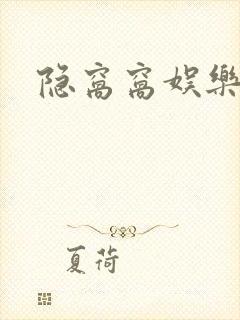 隐窝窝娱樂
夏荷